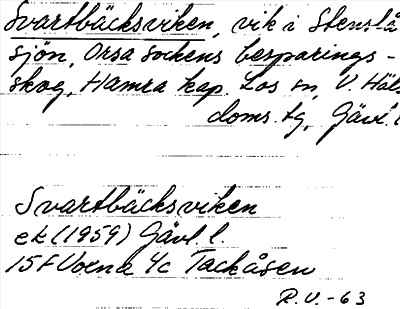 Svartbäcksviken, vik i Stenslå
sjön, Orsa sockens besparings-
skog, Hamra kap. Los sn, V. Häls
doms. tg, Gävl. l
Svartbäcksviken
ek (1959) Gävl. l.
15F Voxna 4c Tackåsen
R.V. - 63